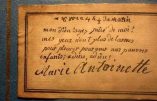 de matin
mon Dieu ayez pitié de moi !
mes yeux n'ont plus de larmes
pour pleurer pour vous mes pauvres
enfants. adieu, adieu !
Marie Antoinette